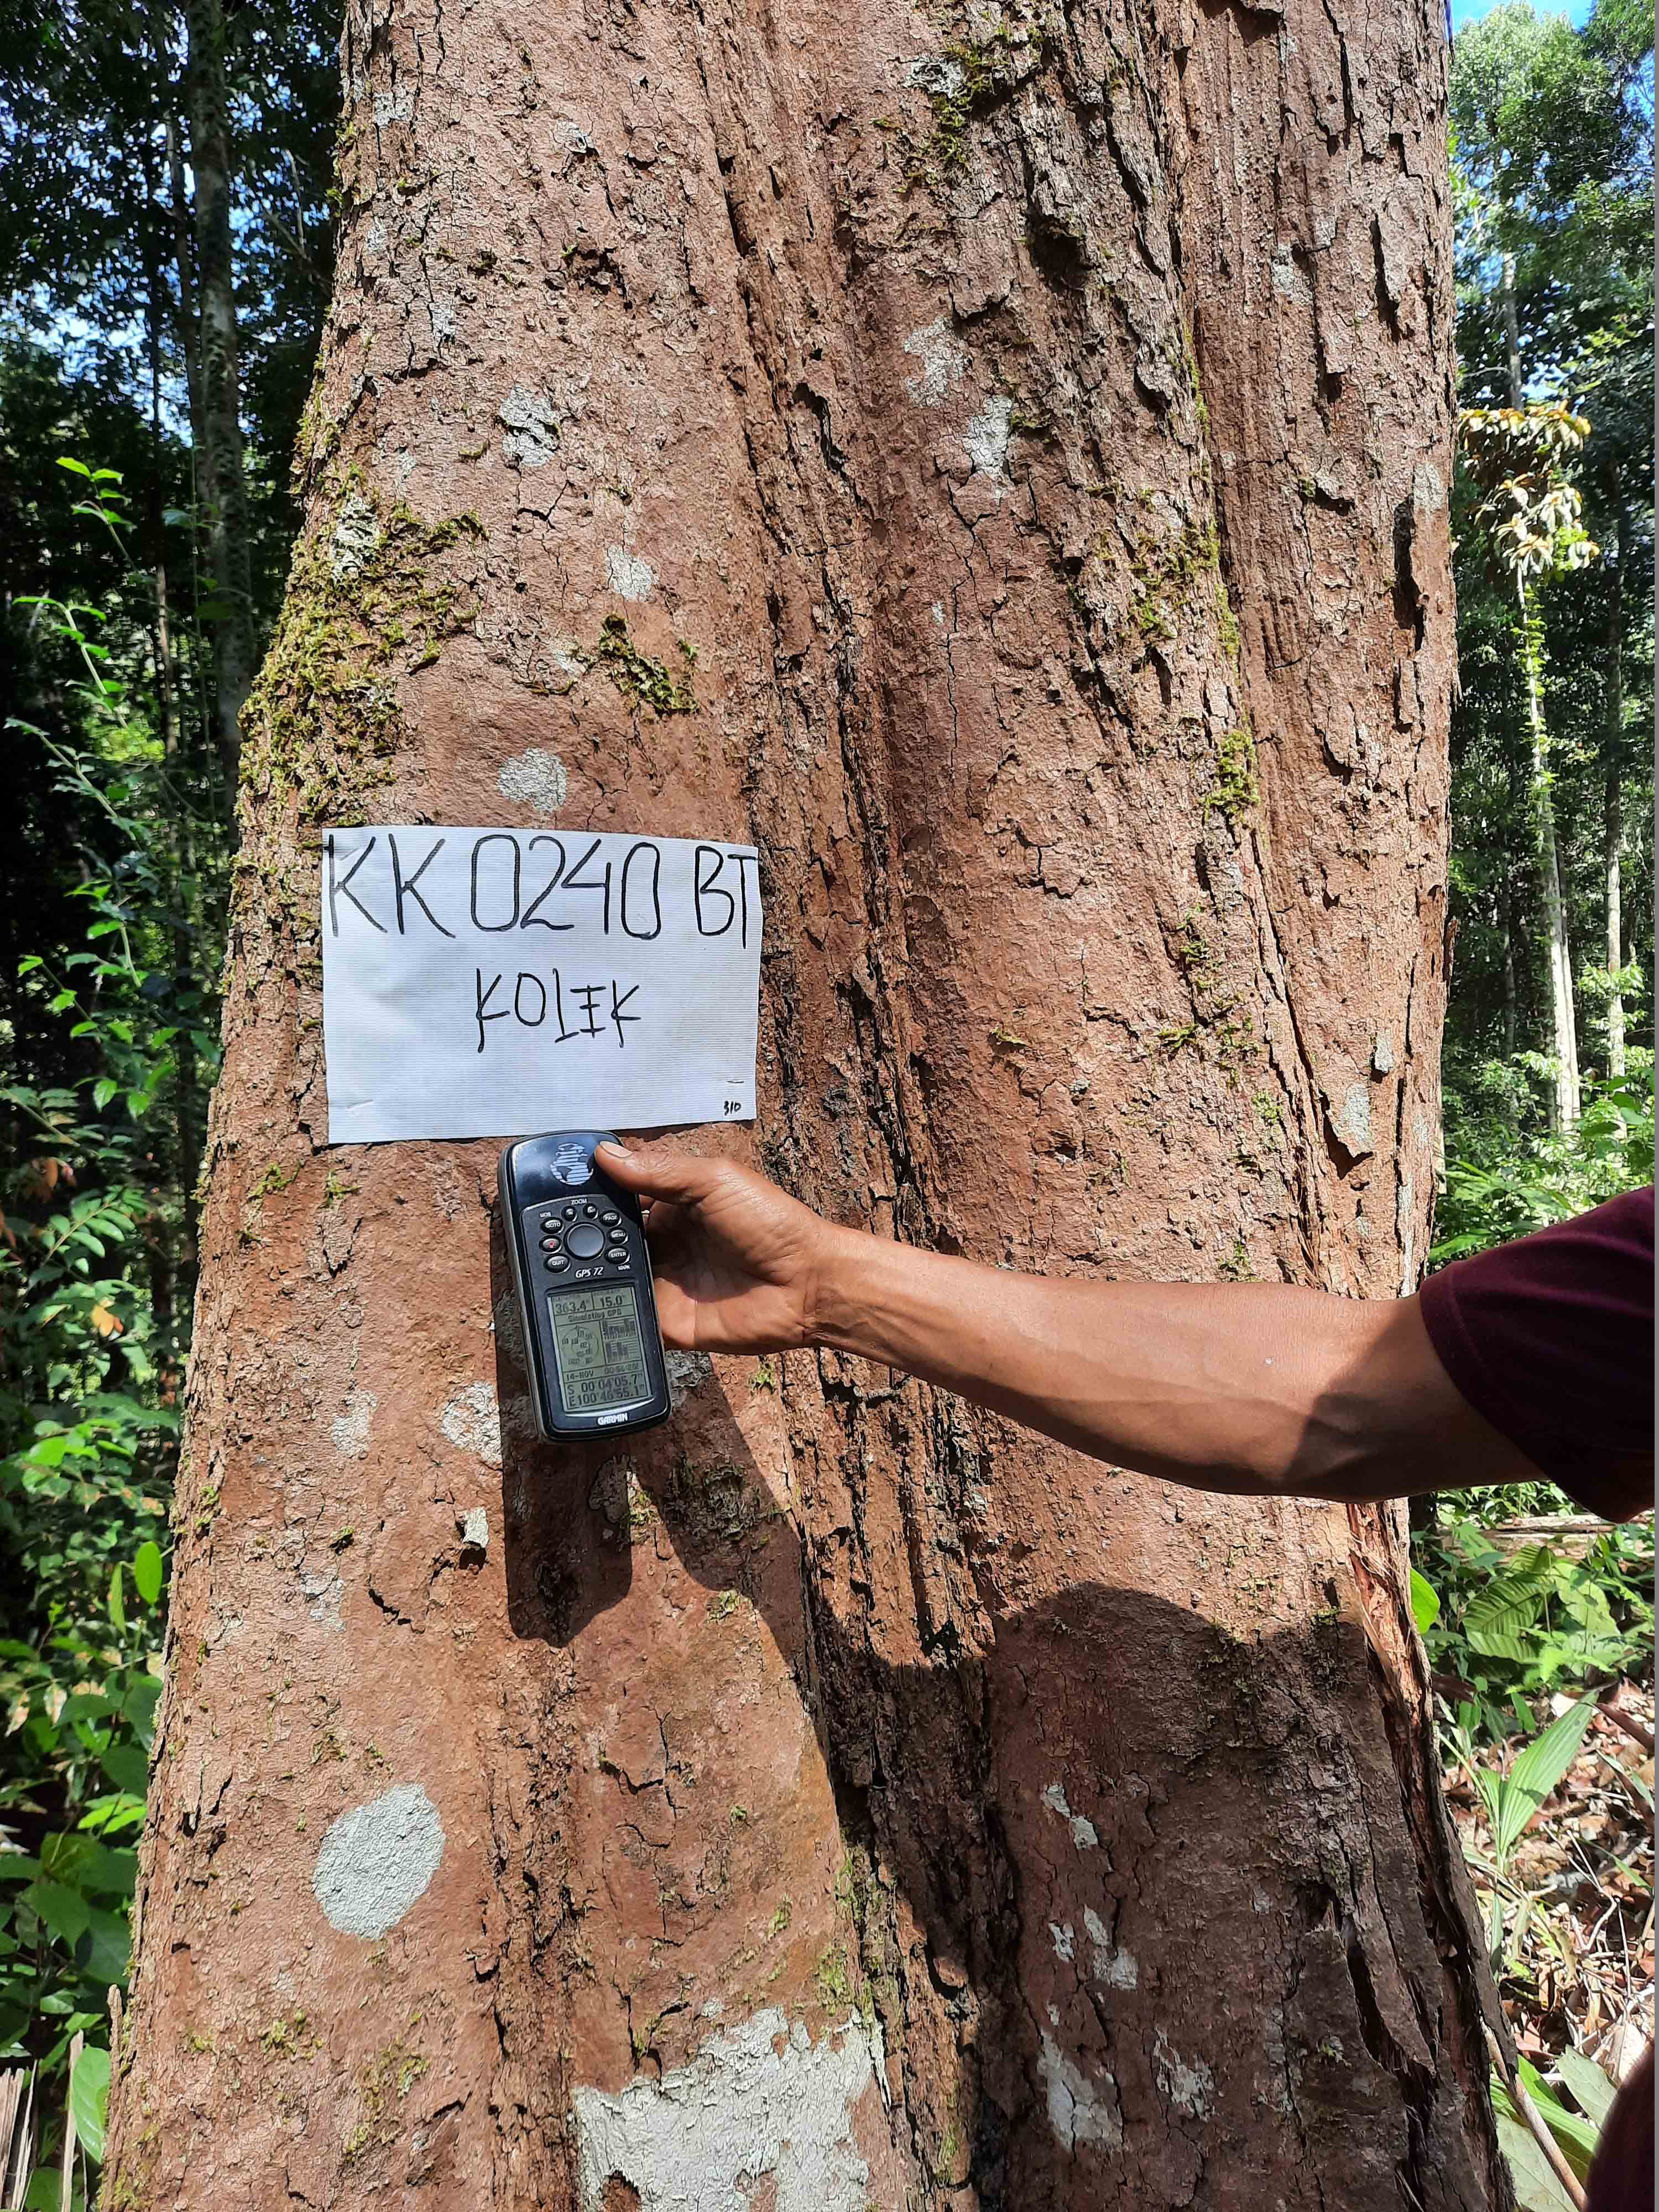 KK 0240 BT
KOLEK
310
ZOOM
MOB
GOTO
PAGE
MENU
QUIT
ENTER
MARK
GPS 72
363.4' 15.0'
Simulating GPS
14-NOV
S 00°04'05.7"
E100°46'55.1"
GARMIN